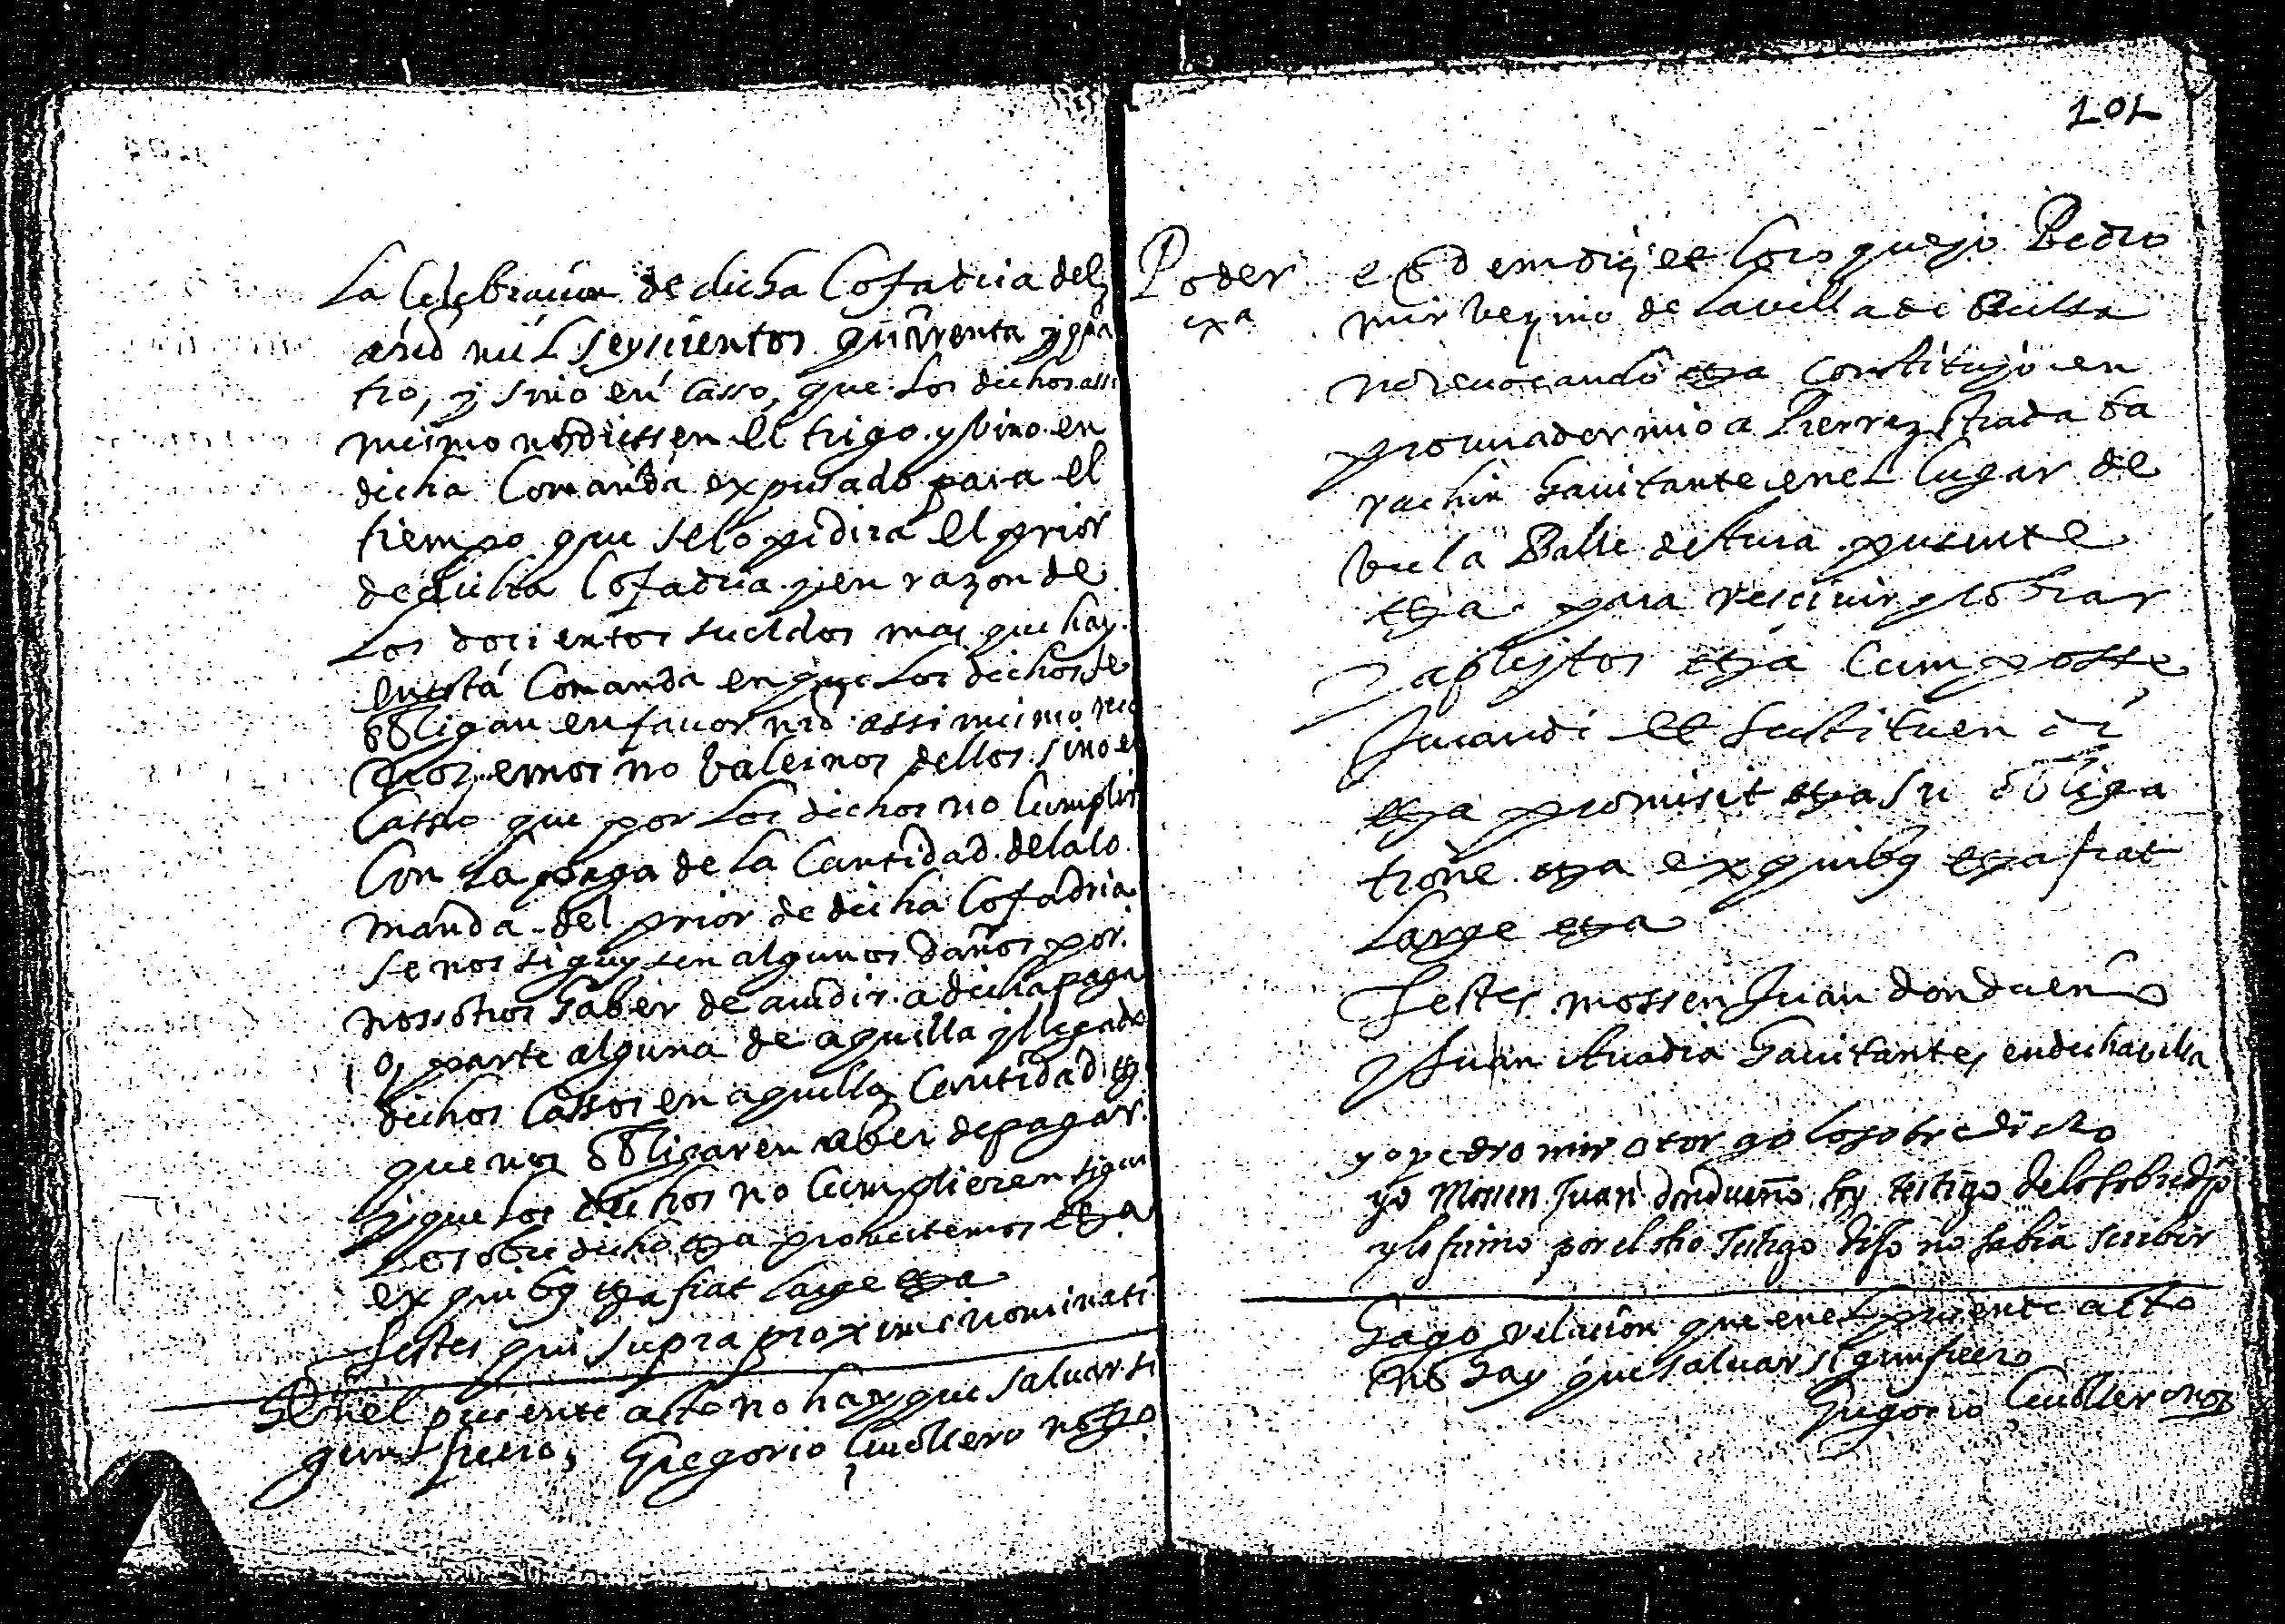 La Celebraçion de dicha Cofadria del
año mil seyscientos quarenta y qua
tro, y sino en casso, que los dichos assi
mismo no diessen el trigo y vino en
dicha Comanda expresado para el
tiempo que se lo pidira el prior
de dicha Cofadria y en razon de
Los docientos sueldos mas que hay
en esta Comanda en que los dichos se
obligan en favor nro assi mismo no
podemos no valeinos dellos sino en
Casso que por los dichos no Cumplir
Con la paga de la Cantidad de la Co
manda del prior de dicha Cofadria
se nos siguyssen algunos daños por
nossotros haber de acudir a dicha paga
o, parte alguna de aquella y llegado
dichos Cassos en aquella Cantidad
que nos obligaren aber de pagar
y que los dichos no Cumplieren segun
Lo sobre dicho etza prometemos etza
ex quibus etza fiat large etza
Testes qui supra proxime nominati
En el presente acto no hay que salvar se
gun fuero, Gregorio Cavallero notrio
101
Poder
etza
eod em die et loco que yo Pedro
mir vezino de la villa de
no revocando etza constituyo en
procurador mio a Pierrez Strada
havitante en el lugar de
la Balle de presente
etza para rescivir y cobrar
y a pleytos etza Cum posse
Jurandi et sustituendi
etza promisit etza su obliga
tione etza ex quibus etza fiat
Large etza
Testes mossen Juan Donduen
y Juan Abadia havitantes en dicha villa
yo pedro mir otorgo lo sobredicho
yo Mosen Juan Dondueño soy testigo de lo sobredicho
y lo firmo por el otro testigo dijo no sabia scribir
Hago relacion que en el presente acto
no hay que salvar segun fuero
Gregorio Cavallero not